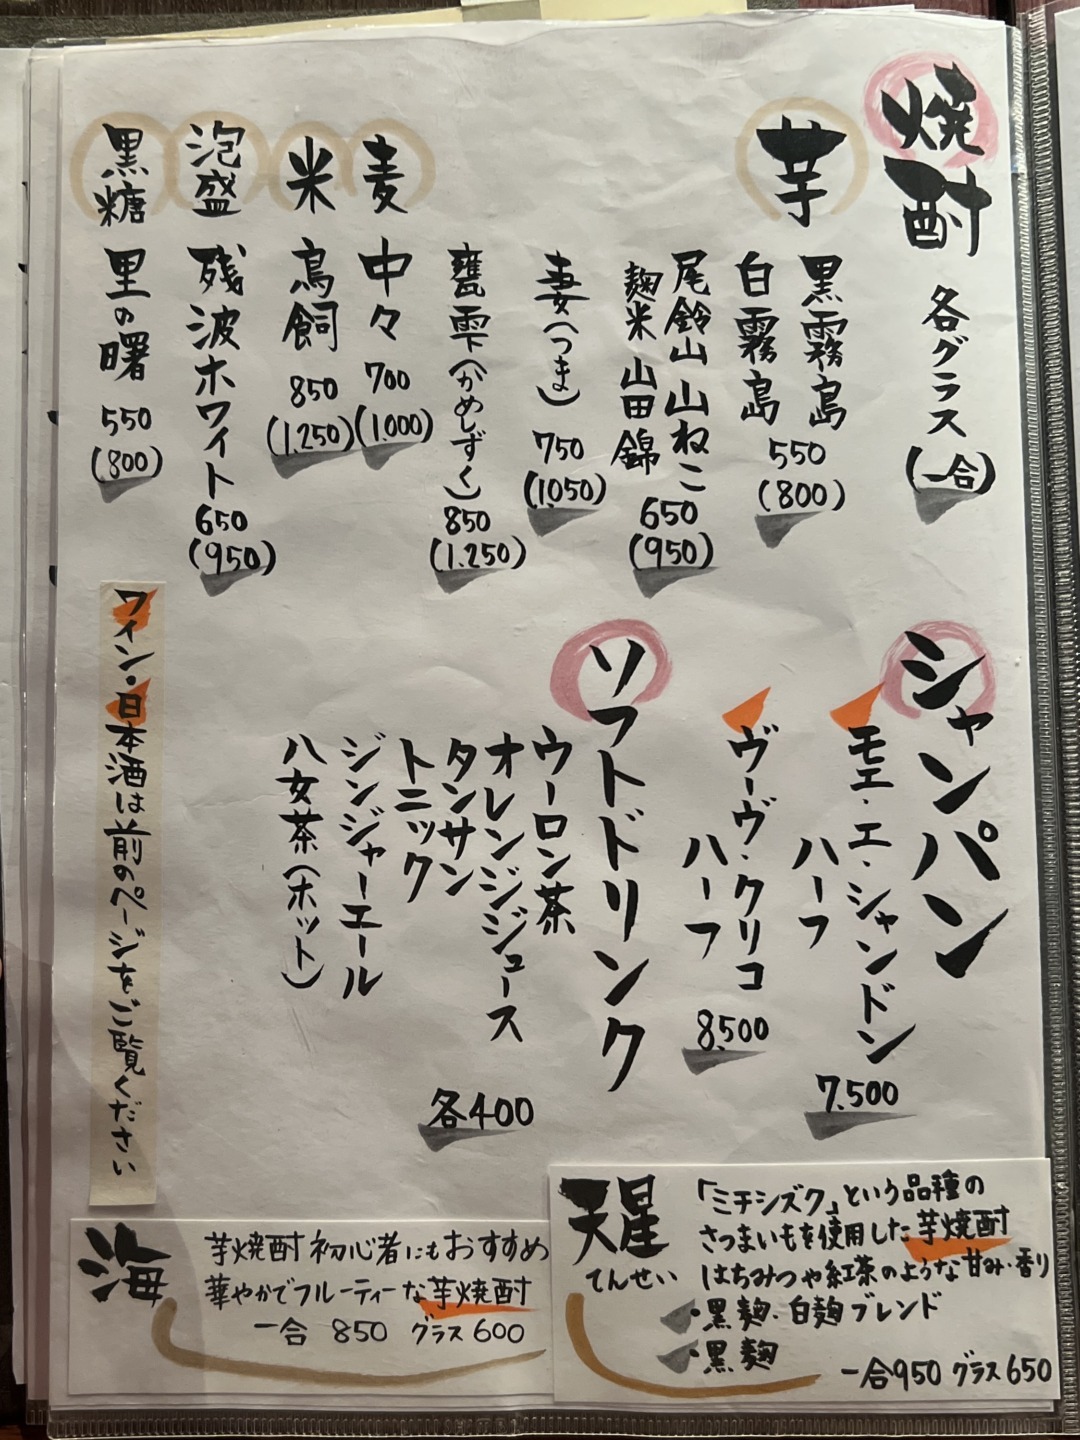 焼酎 各グラス(一合)
芋
黒霧島
白霧島
550
(800)
尾鈴山 山ねこ
麹米 山田錦
650
(950)
妻(つま)
750
(1050)
甕雫(かめしずく)
850
(1.250)
麦
中々
700
(1.000)
米
鳥飼
850
(1.250)
泡盛
残波ホワイト
650
(950)
黒糖
里の曙
550
(800)
シャンパン
モエ・エ・シャンドン
ハーフ
7.500
ヴーヴ・クリコ
ハーフ
8.500
ソフトドリンク
ウーロン茶
オレンジジュース
タンサン
トニック
ジンジャーエール
八女茶(ホット)
各400
ワイン・日本酒は前のページをご覧ください
天星
てんせい
「ミチシズク」という品種の
さつまいもを使用した芋焼酎
はちみつや紅茶のような甘み・香り
・黒麹・白麹ブレンド
・黒麹
一合950 グラス650
海
芋焼酎初心者にもおすすめ
華やかでフルーティーな芋焼酎
一合 850 グラス600